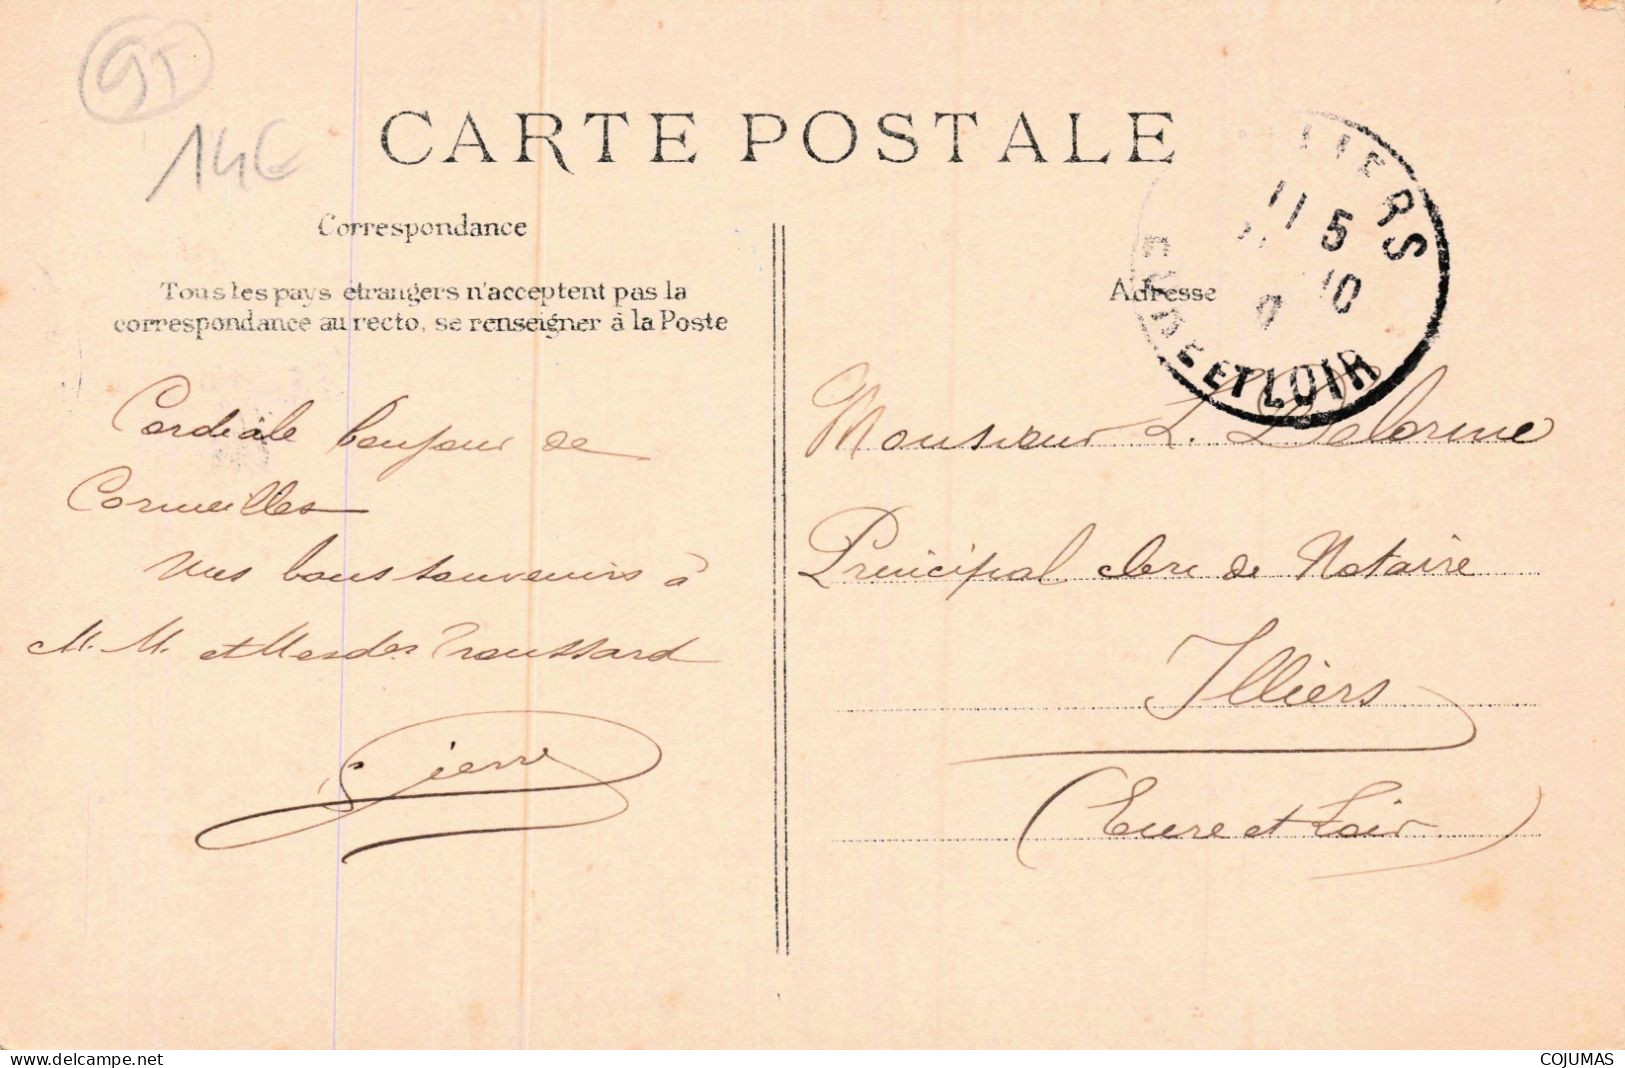 95
14€
CARTE POSTALE
Correspondance
Tous les pays étrangers n'acceptent pas la
correspondance au recto, se renseigner à la Poste
Cordiale bonjour de
Cormeilles
Mes bons souvenirs à
M. M. et Mesdes Troussard
Pierre
Adresse
ILLIERS
11 5
10
EURE ET LOIR
Monsieur L. Delorme
Principal clerc de Notaire
Illiers
(Eure et Loir)
www.delcampe.net
COJUMAS